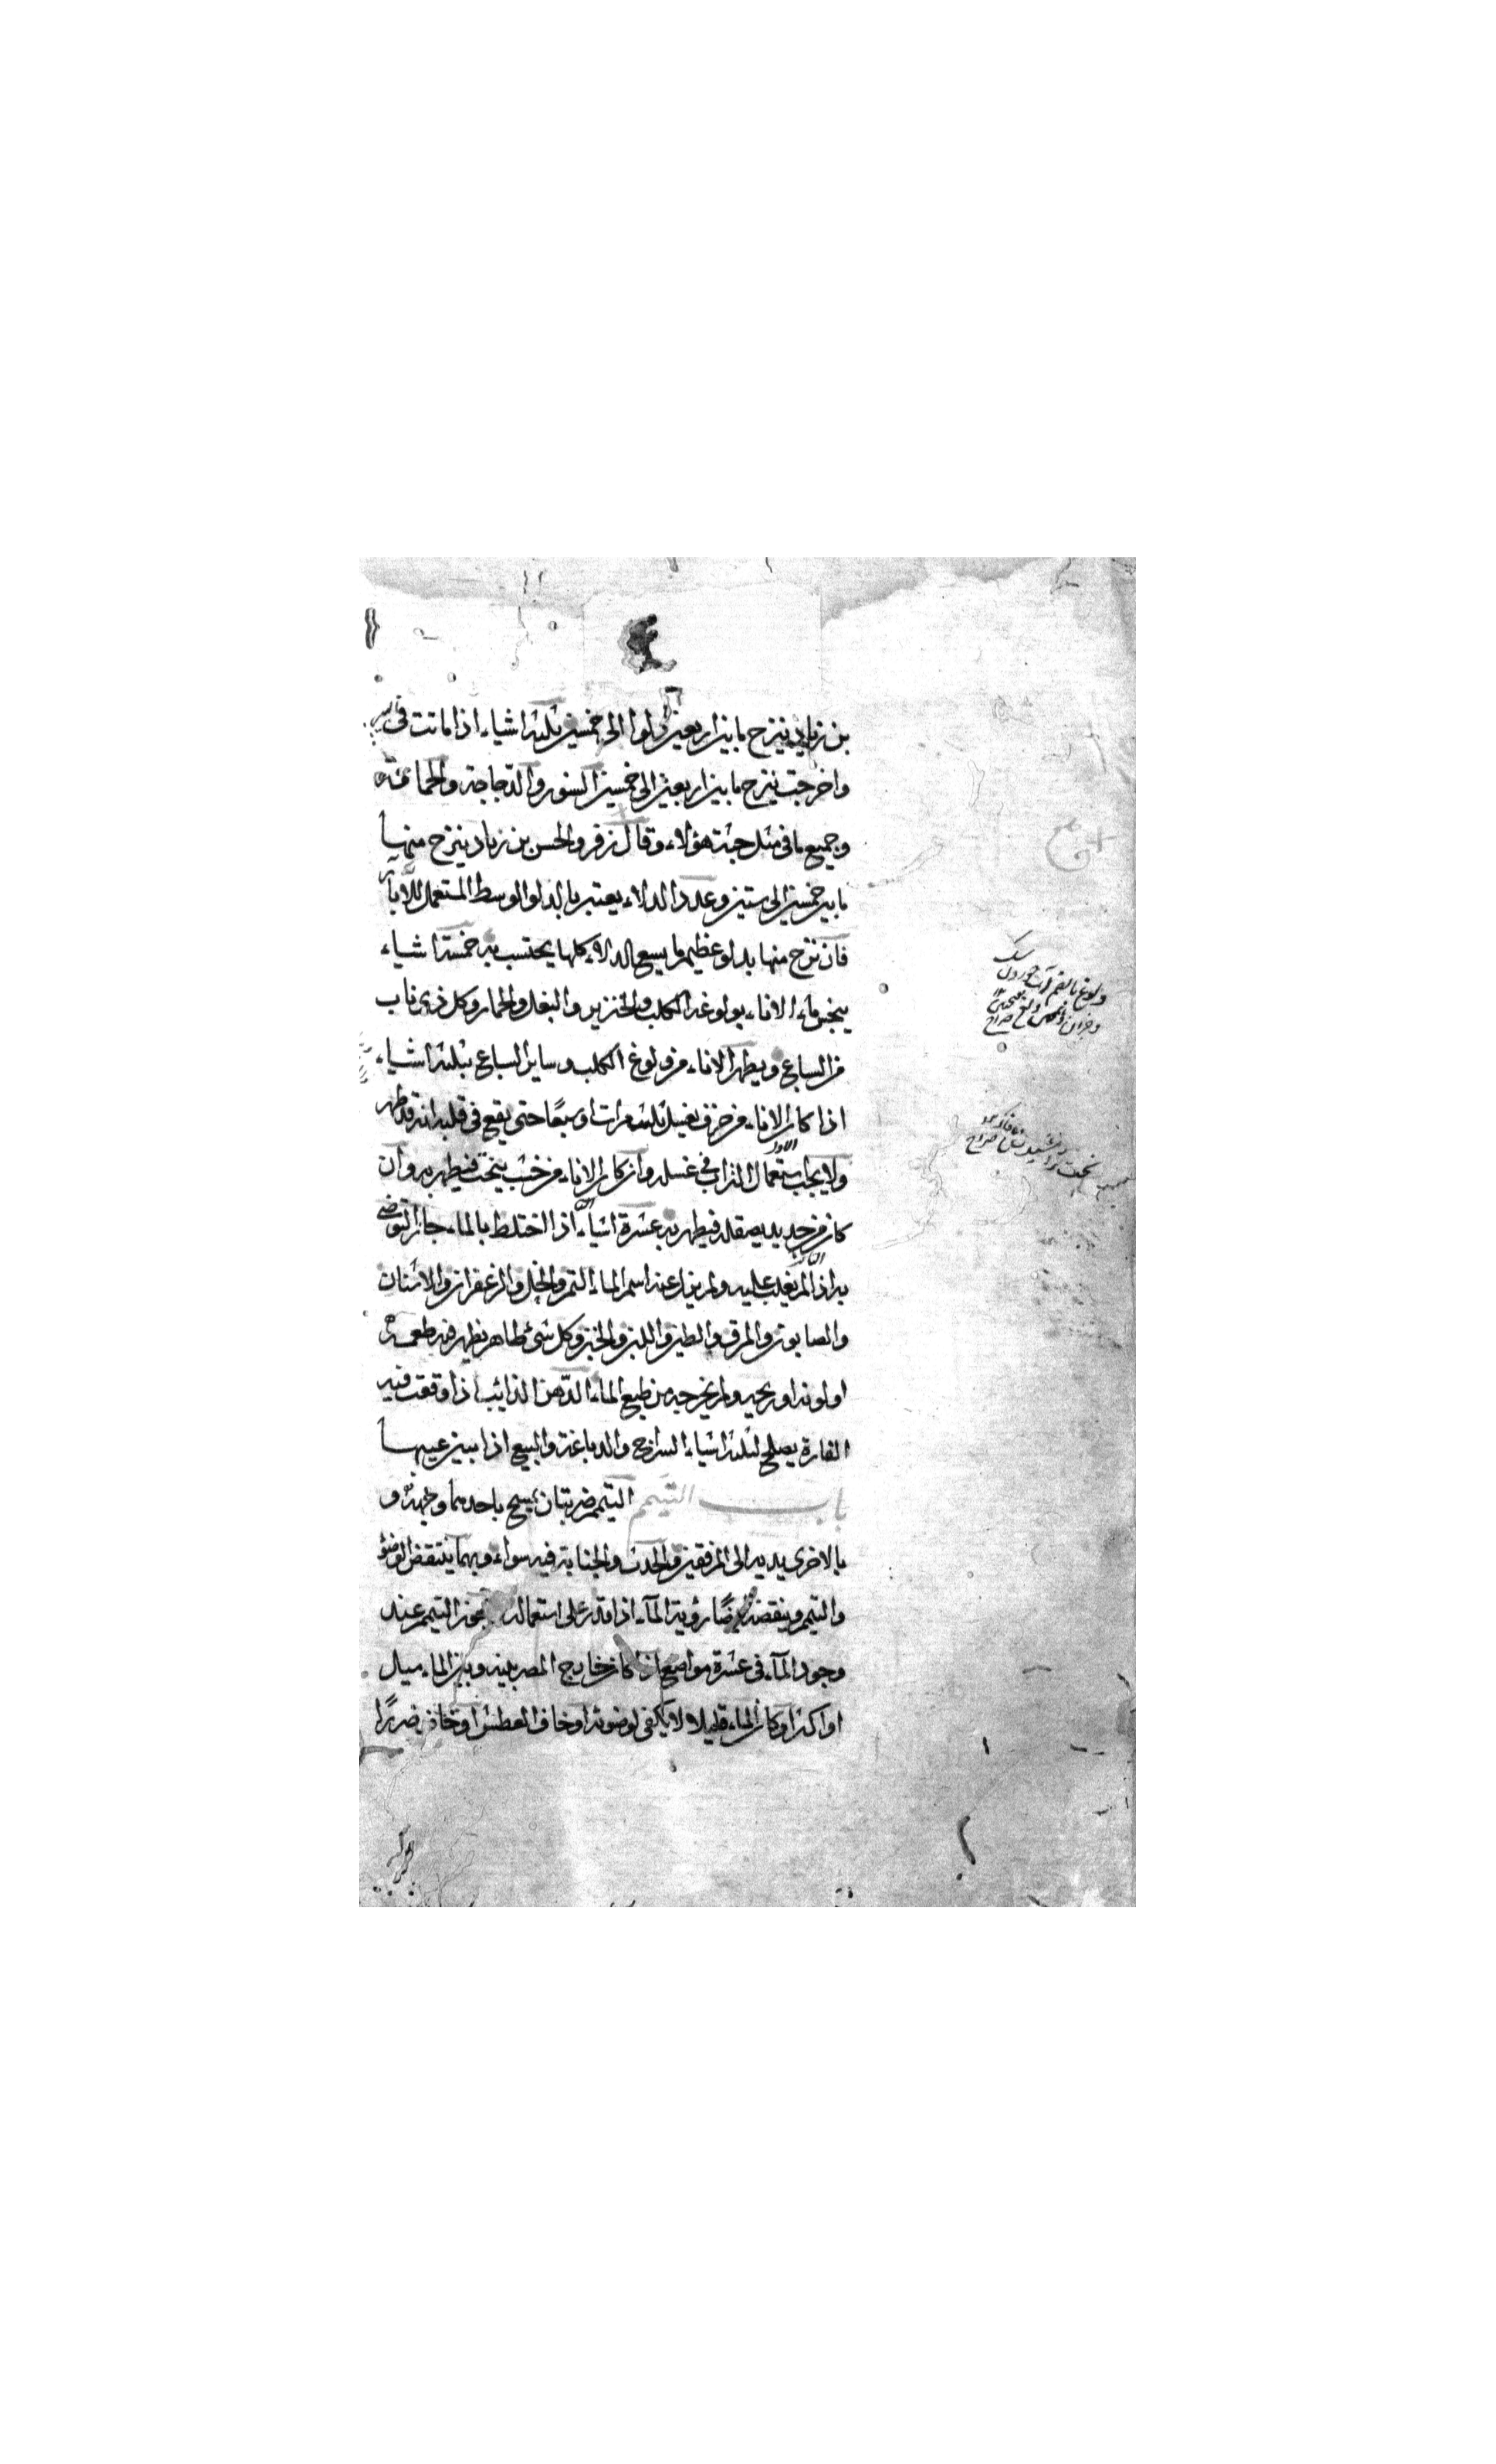 بن زياد ينزح ما بين اربعين دلوا الى خمسين ثلثة اشياء اذا ماتت فى بير
واخرجت ينزح ما بين اربعين الى خمسين السنور والدجاجة والحمامة
وجميع ما فى مثل جثة هؤلاء وقال زفر والحسن بن زياد ينزح منها
ما بين خمسين الى ستين وعدد الدلاء يعتبر بالدلو الوسط المستعمل للآبار
فان نزح منها بدلو عظيم ما يسع الدلاء كلها يحتسب به خمسة اشياء
ينجس ماء الاناء بولوغه الكلب والخنزير والبغل والحمار وكل ذى ناب
من السباع ويطهر الاناء من ولوغ الكلب وساير السباع بثلثة اشياء
اذا كان الاناء من خزف يغسل ثلث مرات او سبعًا حتى يقع فى قلبه انه قد طهر
ولا يجب استعمال التراب فى غسله وان كان الاناء من خشب ينحت فيطهر به وان
كان من حديد يصقله فيطهر به عشرة اشياء اذا اختلط بالماء جاز التوضى
به اذا لم يغلب عليه ولم يزل عنه اسم الماء التمر والخل والزعفران والاشنان
والصابون والمرق والطين واللبن والخبز وكل شئ طاهر يظهر فيه طعمه
او لونه او ريحه ولم يخرجه من طبع الماء الدهن الذائب اذا وقعت فيه
الفارة يصلح لثلثة اشياء السراج والدباغة والبيع اذا بين عيبها
باب التيمم التيمم ضربتان يمسح باحدهما وجهه و
بالاخرى يديه الى المرفقين والحدث والجنابة فيه سواء وبهما ينتقض الوضؤ
والتيمم وينقضه ايضًا رؤية المآء اذا قدر على استعماله يجوز التيمم عند
وجود المآء فى عشرة مواضع اذا كان خارج المصر بينه وبين الماء ميل
او اكثر او كان الماء قليلا لا يكفى لوضوئه او خاف العطش او خاف ضررًا